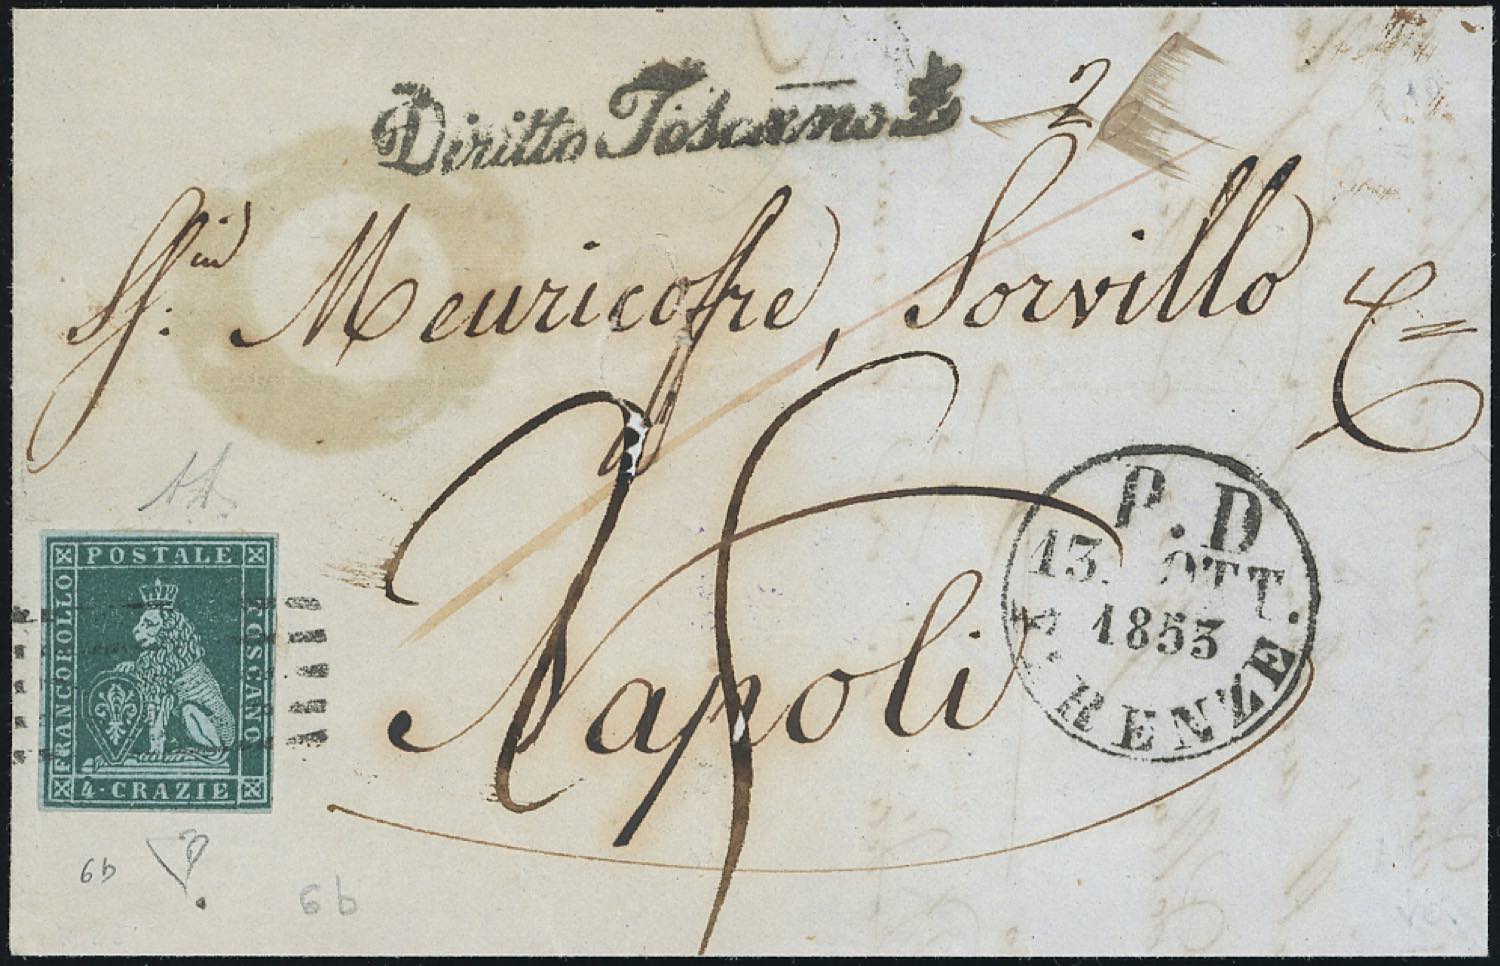 Diritto Toscano £ 2
Sg.in Meuricoffre, Sorvillo &=
Napoli
P.D
13. OTT.
1853
FIRENZE
POSTALE
FRANCOBOLLO
TOSCANO
4·CRAZIE
6b
6b